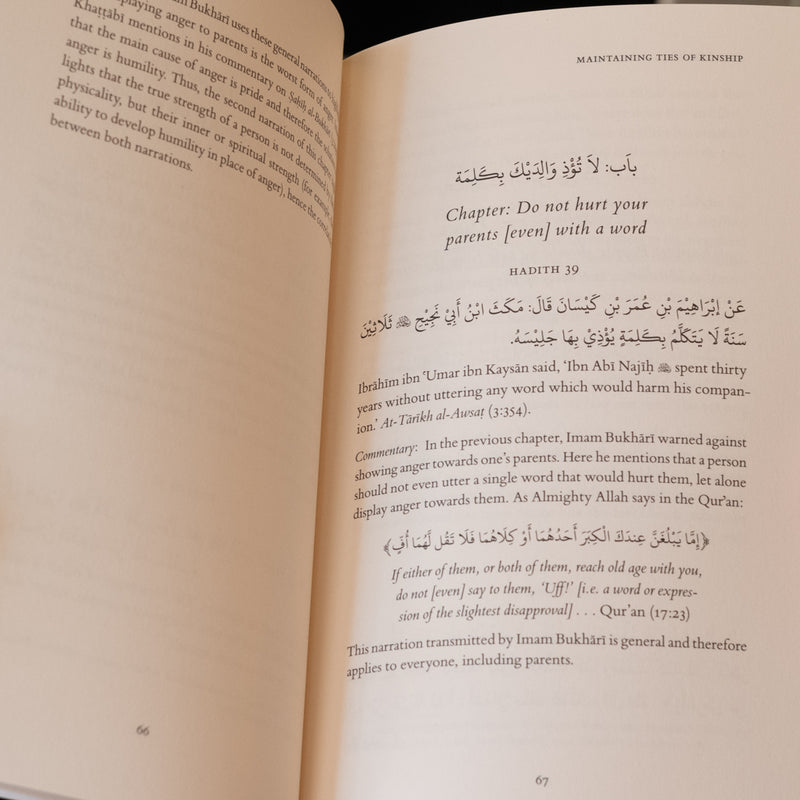 Bukhārī uses these general narrations to
playing anger to parents is the worst form of anger
Khaṭṭābī mentions in his commentary on Ṣaḥīḥ al-Bukhārī
that the main cause of anger is pride and therefore the
anger is humility. Thus, the second narration of this chapter
lights that the true strength of a person is not determined by
physicality, but their inner or spiritual strength (for example
ability to develop humility in place of anger), hence the
between both narrations.
66
MAINTAINING TIES OF KINSHIP
بَاب: لاَ تُؤْذِ وَالِدَيْكَ بِكَلِمَة
Chapter: Do not hurt your
parents [even] with a word
HADITH 39
عَنْ إِبْرَاهِيْمَ بْنِ عُمَرَ بْنِ كَيْسَانَ قَالَ: مَكَثَ ابْنُ أَبِيْ نَجِيْحٍ ثَلَاثِيْنَ
سَنَةً لَا يَتَكَلَّمُ بِكَلِمَةٍ يُؤْذِيْ بِهَا جَلِيْسَهُ.
Ibrāhīm ibn ʿUmar ibn Kaysān said, ‘Ibn Abī Najīḥ spent thirty
years without uttering any word which would harm his compan-
ion.’ At-Tārīkh al-Awsaṭ (3:354).
Commentary: In the previous chapter, Imam Bukhārī warned against
showing anger towards one’s parents. Here he mentions that a person
should not even utter a single word that would hurt them, let alone
display anger towards them. As Almighty Allah says in the Qur’an:
﴿إِمَّا يَبْلُغَنَّ عِندَكَ الْكِبَرَ أَحَدُهُمَا أَوْ كِلَاهُمَا فَلَا تَقُل لَّهُمَا أُفٍّ﴾
If either of them, or both of them, reach old age with you,
do not [even] say to them, ‘Uff!’ [i.e. a word or expres-
sion of the slightest disapproval] . . . Qur’an (17:23)
This narration transmitted by Imam Bukhārī is general and therefore
applies to everyone, including parents.
67